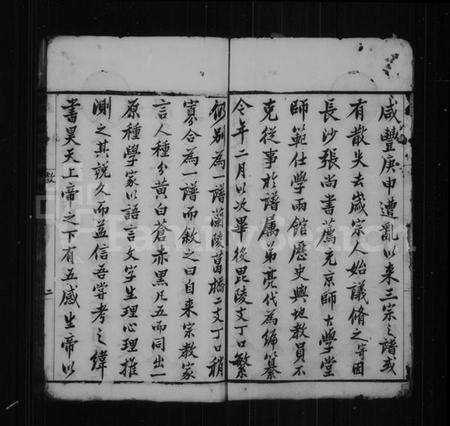 咸豐庚申遭亂以來三宗之譜或
有散失去歲宗人始議脩之寄因
長沙張尚書薦充京師大學堂
師範仕學兩館歷史輿地教員不
克從事於譜屬弟亮代為編纂
今年二月以次畢後毘陵支丁口繁
仍別為一譜蘭陵萬橋二支丁口稍
寡合為一譜而敘之曰自來宗教家
言人種分黃白蒼赤黑凡五而同出一
原種學家以語言文字生理心理推
測之其說久而益信吾嘗考之緯
書昊天上帝之下有五感生帝以
二
FamilySearch